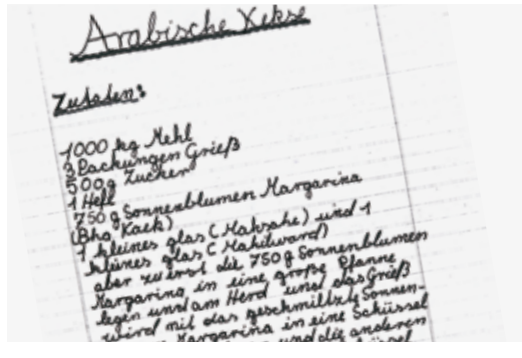 Arabische Kekse
Zutaten:
1000 kg Mehl
3 Packungen Grieß
500g Zucker
1 Hefe
750 g Sonnenblumen Margarina
(Bho Kaek)
1 kleines glas (Mahrahe) und 1
kleines glas (Mahilward)
aber zu erst die 750g Sonnenblumen
Margarina in eine große Pfanne
legen und am Herd und das Grieß
wird mit das geschmiltzte Sonnen-
Margarina in eine Schüssel
und die anderen